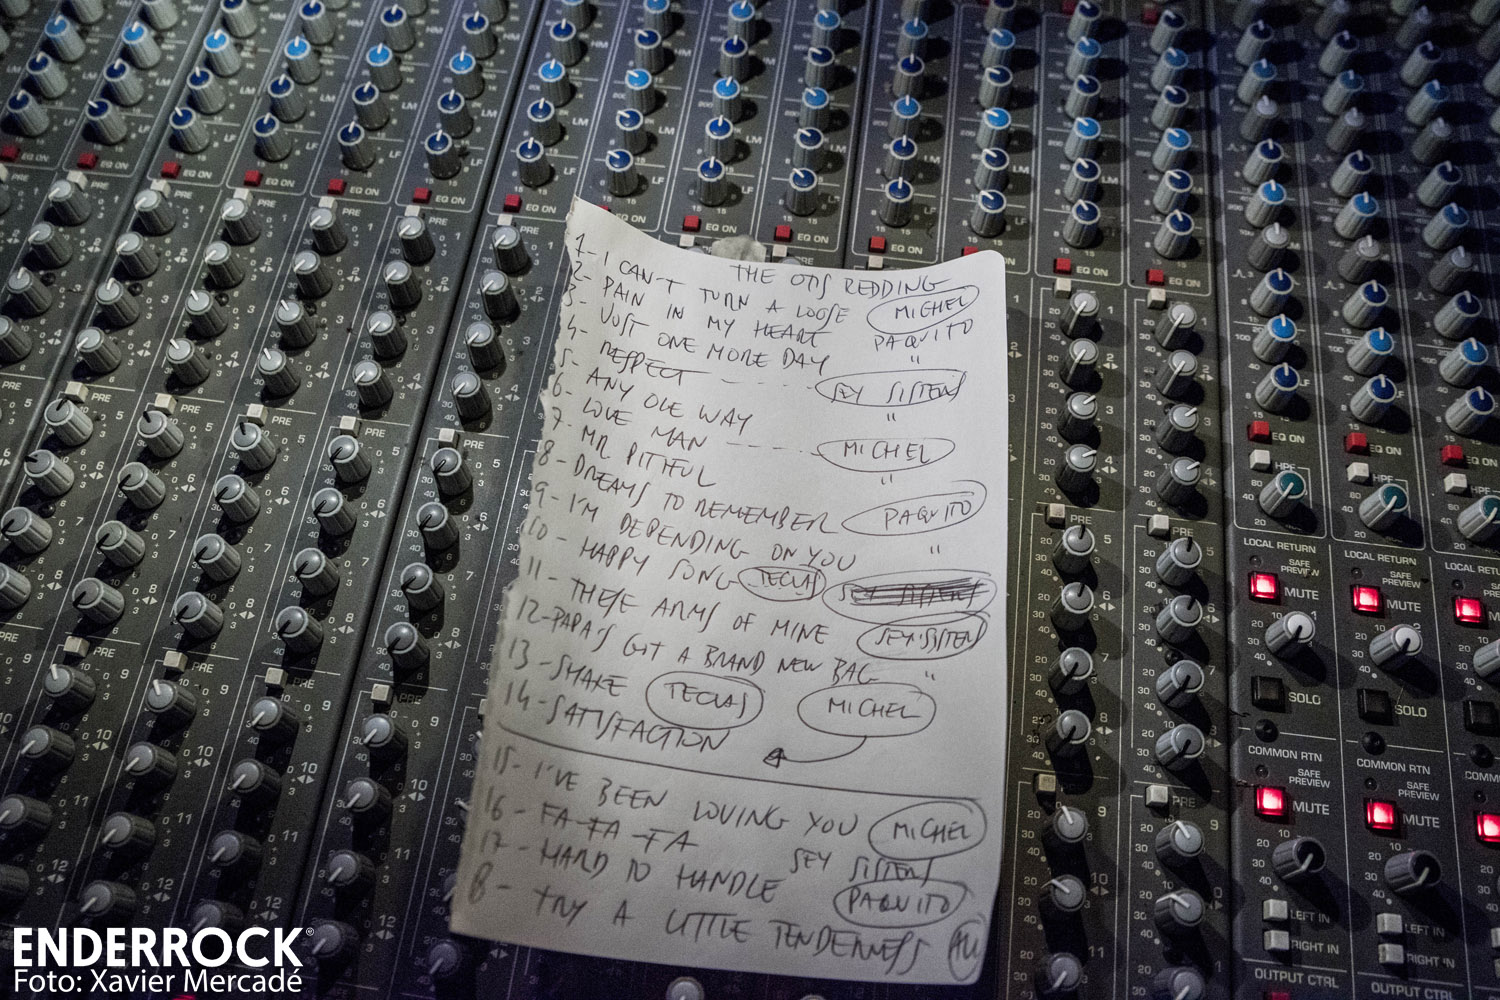 THE OTIS REDDING
1- I CAN'T TURN A LOOSE MICHEL
2- PAIN IN MY HEART PAQUITO
3- JUST ONE MORE DAY "
4- RESPECT ---- SEY SISTERS
5- ANY OLE WAY "
6- LOVE MAN --- MICHEL
7- MR PITIFUL "
8- DREAMS TO REMEMBER PAQUITO
9- I'M DEPENDING ON YOU "
10- HAPPY SONG TECLAS
11- THESE ARMS OF MINE SEY SISTERS
12- PAPA'S GOT A BRAND NEW BAG "
13- SHAKE TECLAS MICHEL
14- SATISFACTION
15- I'VE BEEN LOVING YOU MICHEL
16- FA-FA-FA SEY SISTERS
17- HARD TO HANDLE PAQUITO
8- TRY A LITTLE TENDERNESS
EQ ON
PRE
LOCAL RETURN
SAFE PREVIEW
MUTE
SOLO
COMMON RTN
SAFE PREVIEW
MUTE
LEFT IN
RIGHT IN
OUTPUT CTRL
ENDERROCK
Foto: Xavier Mercadé